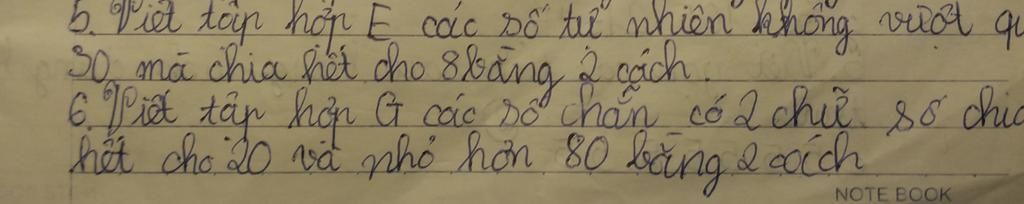 5. Viết tập hợp E các số tự nhiên không vượt qu
30 mà chia hết cho 8 bằng 2 cách.
6. Viết tập hợp G các số chẵn có 2 chữ số chia
hết cho 20 và nhỏ hơn 80 bằng 2 cách
NOTE BOOK